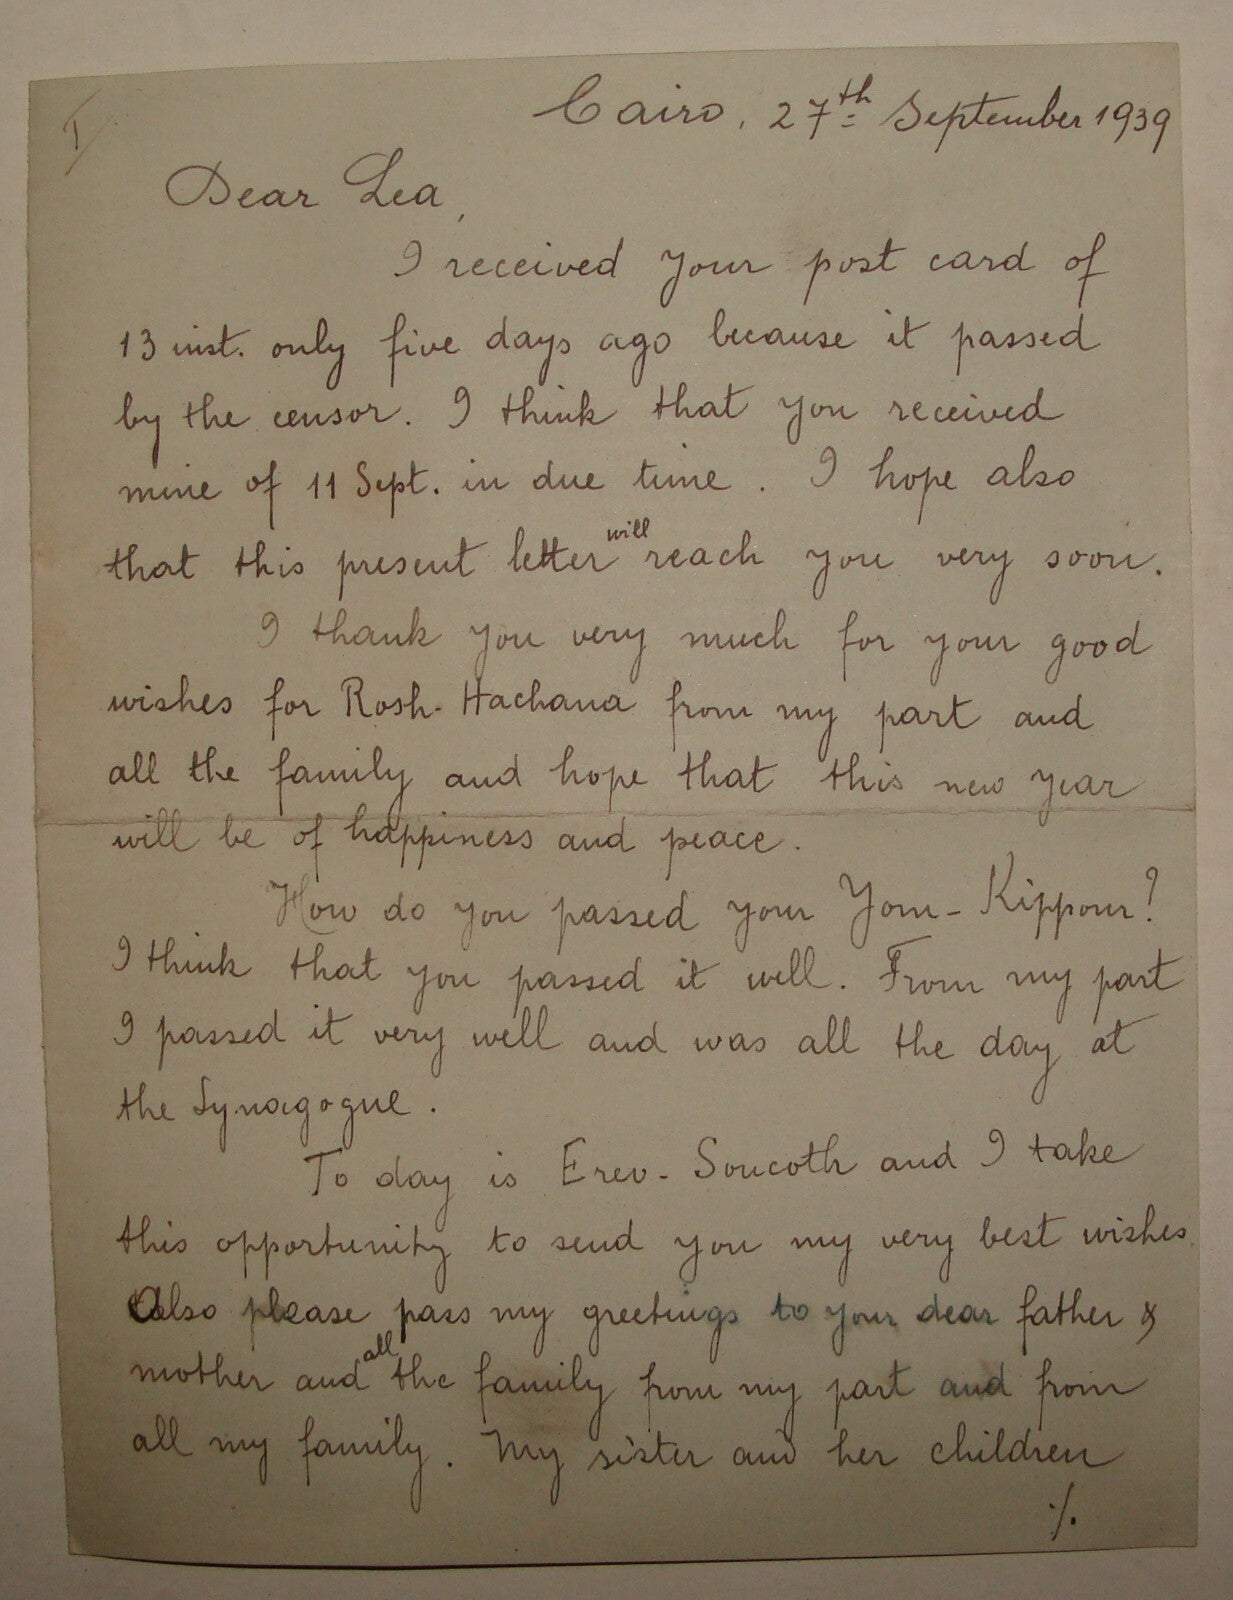 I
Cairo, 27th September 1939
Dear Lea,
I received your post card of
13 inst. only five days ago because it passed
by the censor. I think that you received
mine of 11 Sept. in due time. I hope also
that this present letter will reach you very soon.
I thank you very much for your good
wishes for Rosh-Hachana from my part and
all the family and hope that this new year
will be of happiness and peace.
How do you passed your Yom-Kippour?
I think that you passed it well. From my part
I passed it very well and was all the day at
the Synagogue.
To day is Erev-Soucoth and I take
this opportunity to send you my very best wishes.
Also please pass my greetings to your dear father &
mother and all the family from my part and from
all my family. My sister and her children
./.